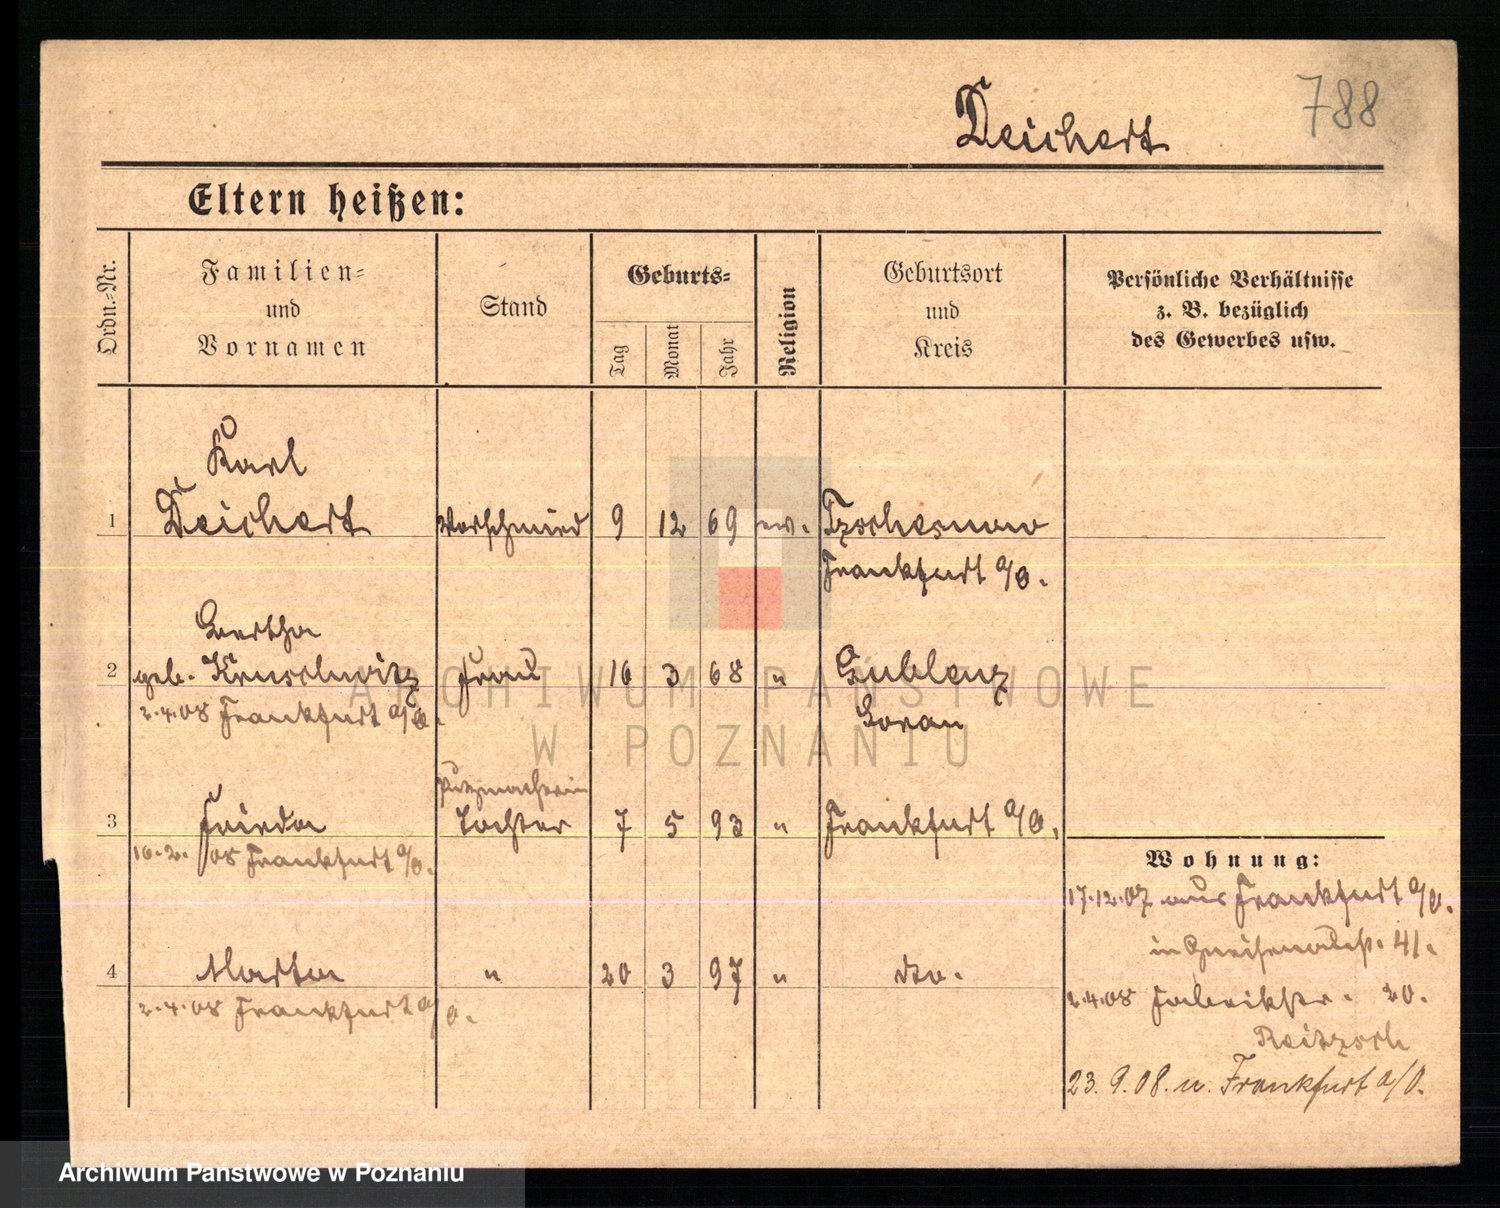 788
Deichert
Eltern heißen:
Ordn.-Nr.
Familien-
und
Vornamen
Stand
Geburts-
Tag
Monat
Jahr
Religion
Geburtsort
und
Kreis
Persönliche Verhältnisse
z. B. bezüglich
des Gewerbes usw.
Karl
1 Deichert Vorschmied 9 12 69 ev. Tzschetzschnow
Frankfurt a/O.
Bertha
2 geb. Frau 16 3 68 " Gublenz
2.4.08 Frankfurt a/O. Sorau
Putzmacherin
3 Frieda Tochter 7 5 93 " Frankfurt a/O.
16.2.08 Frankfurt a/O.
Wohnung:
17.12.07 aus Frankfurt a/O.
in Gneisenaustr. 41.
4 Martha " 20 3 97 " do.
2.4.08 Frankfurt a/O.
2.4.08 Fabrikstr. 20.
23.9.08. n. Frankfurt a/O.
ARCHIWUM PAŃSTWOWE
W POZNANIU
Archiwum Państwowe w Poznaniu